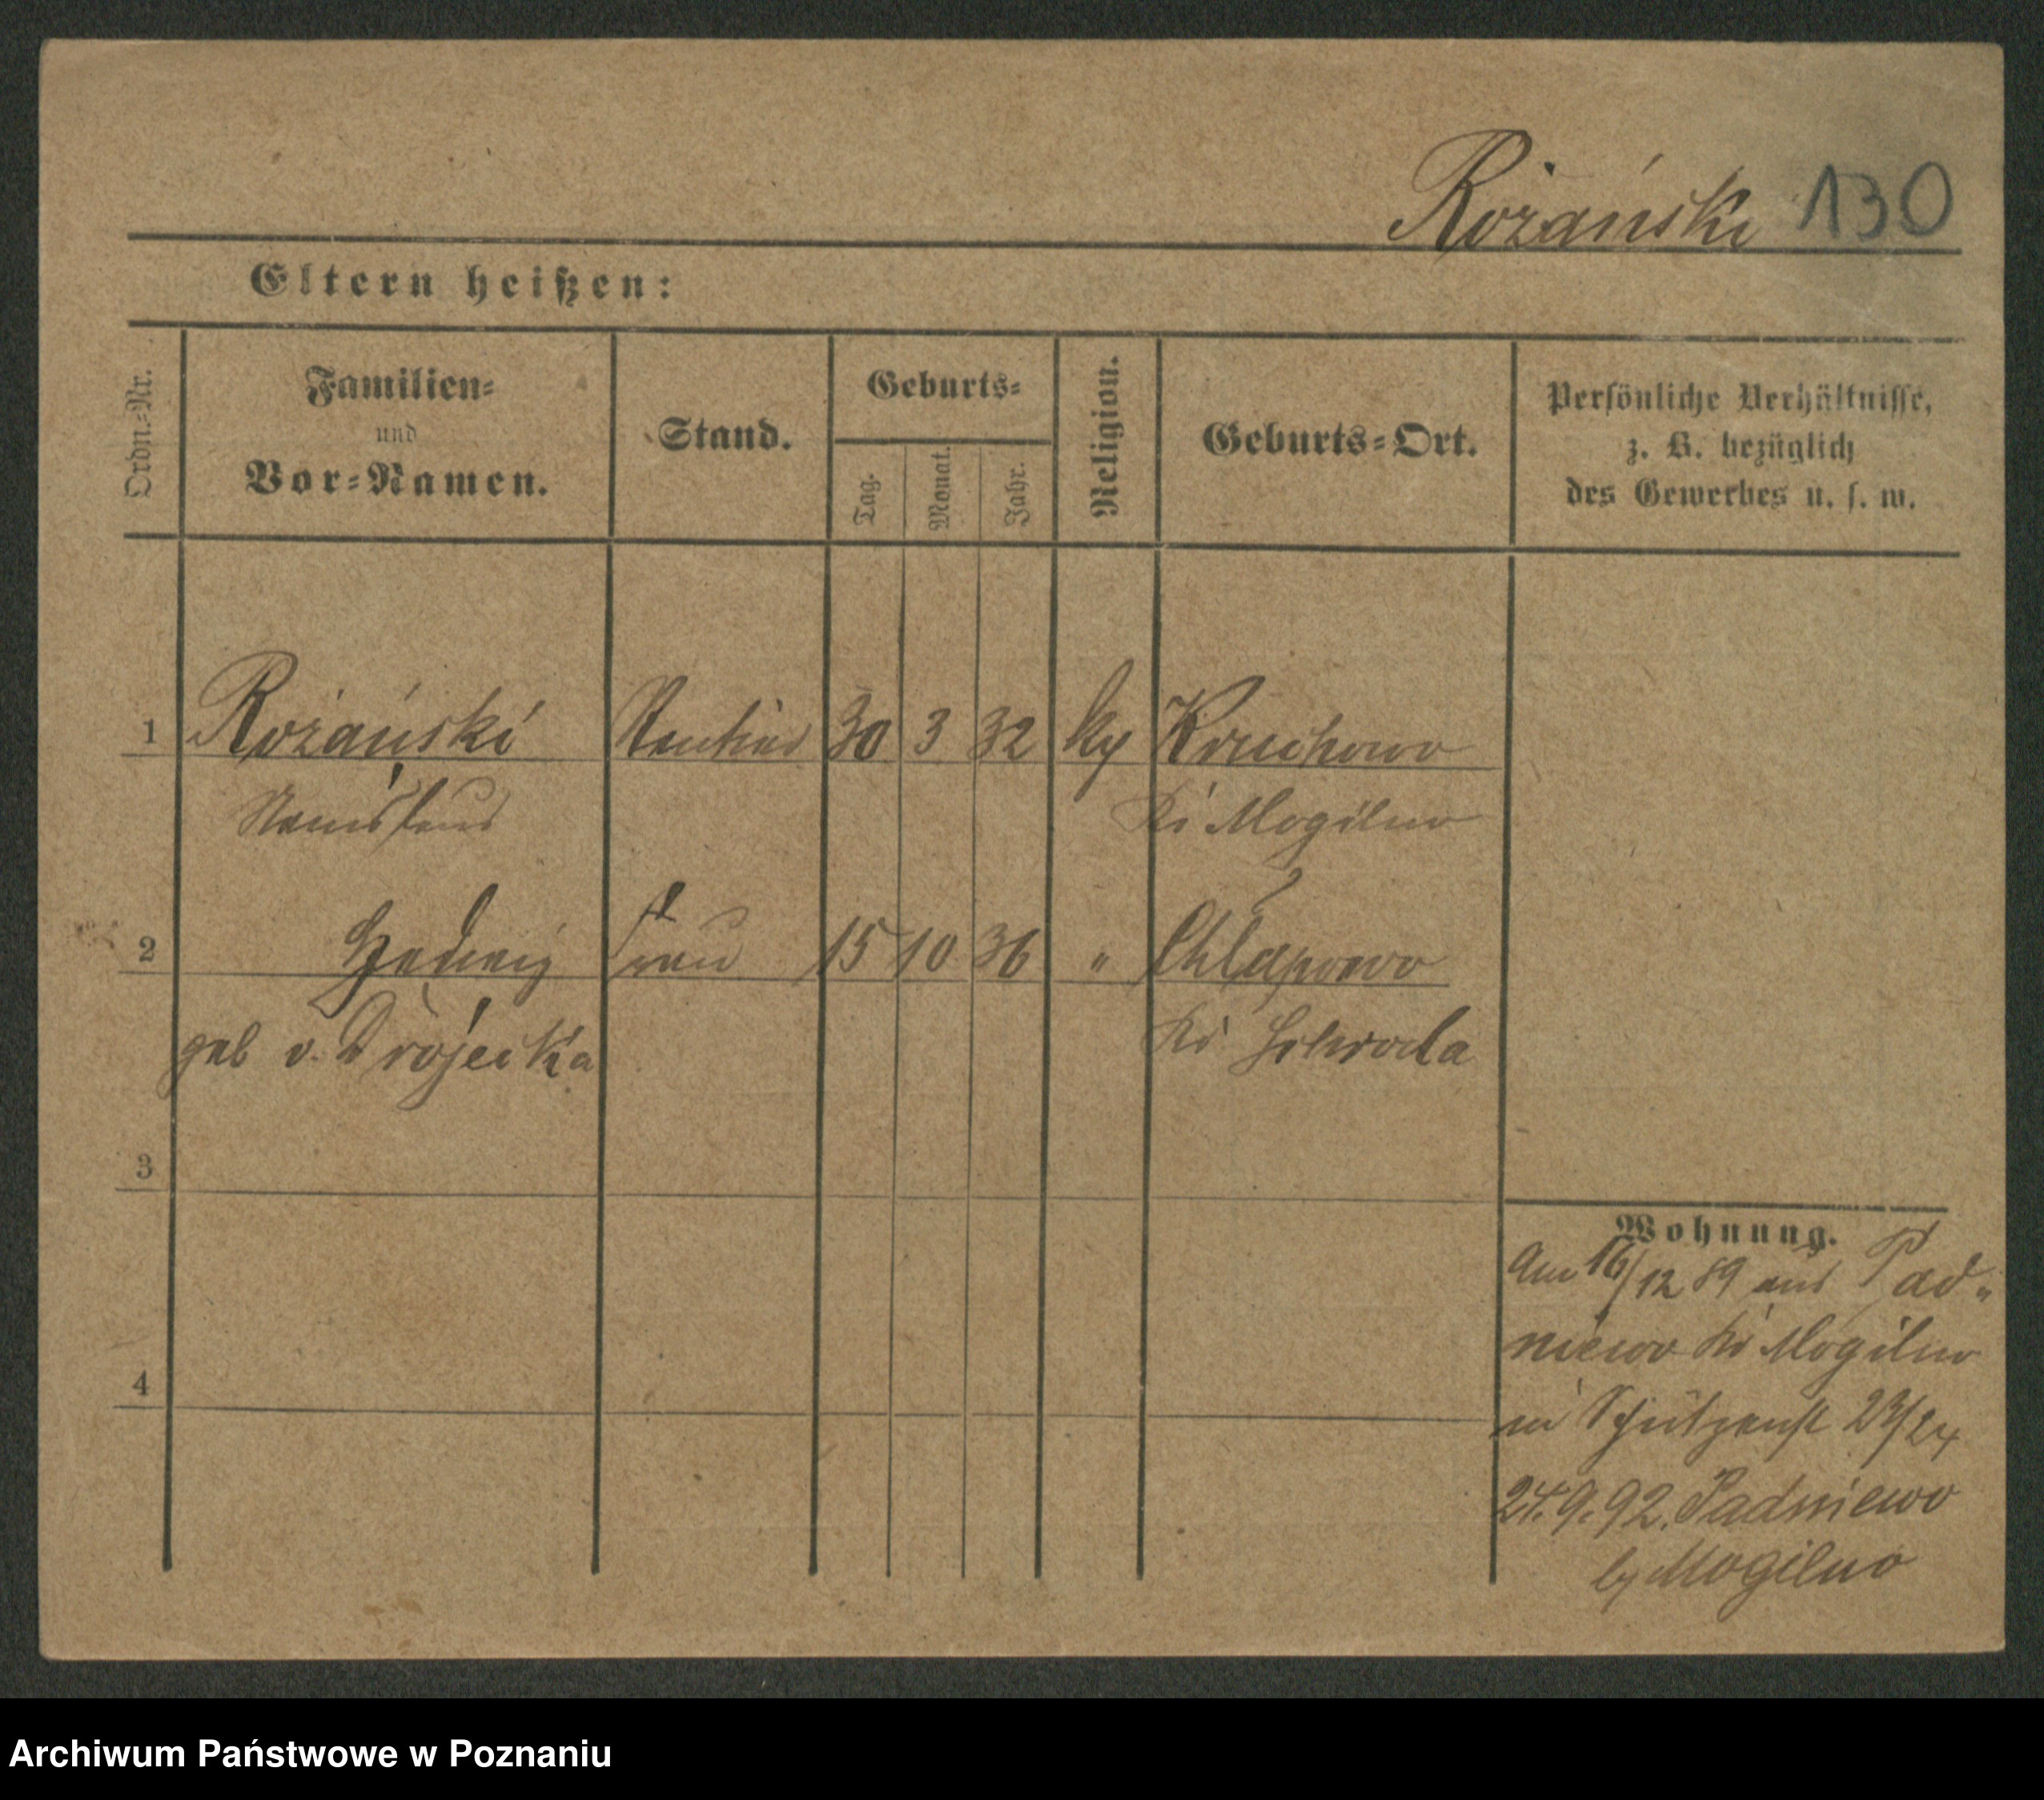 Różański 130
Eltern heißen:
Ordn.=Nr.
Familien=
und
Vor=Namen.
Stand.
Geburts=
Tag.
Monat.
Jahr.
Religion.
Geburts=Ort.
Persönliche Verhältnisse,
z. B. bezüglich
des Gewerbes u. s. w.
1 Różański Rentier 30 3 32 Kruchowo
Stanislaus Kr Mogilno
2 Hedwig Frau 15 10 36 " Chłapowo
geb v. Kr Schroda
3
4
Wohnung.
Am 16/12 89 aus Pad=
niewo Kr Mogilno
in Schützenst 23/24
24.9.92. Padniewo
by Mogilno
Archiwum Państwowe w Poznaniu